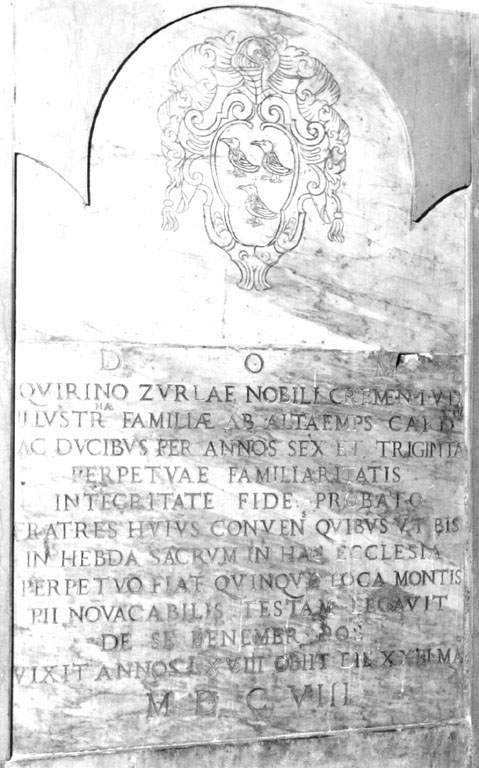 D O M
QVIRINO ZVRLAE NOBILI CREMEN I V D
ILLVSTRⁿᵃᴱ FAMILIÆ AB ALTAEMPS CARD
AC DVCIBVS PER ANNOS SEX ET TRIGINTA
PERPETVAE FAMILIARITATIS
INTEGRITATE FIDE PROBATO
FRATRES HVIVS CONVEN QVIBVS VT BIS
IN HEBDA SACRVM IN HAC ECCLESIA
PERPETVO FIAT QVINQVE LOCA MONTIS
PII NOVACABILIS TESTAM LEGAVIT
DE SE BENEMER POS
VIXIT ANNOS LXVIII OBIIT DIE XXIII MA
M D C VIII